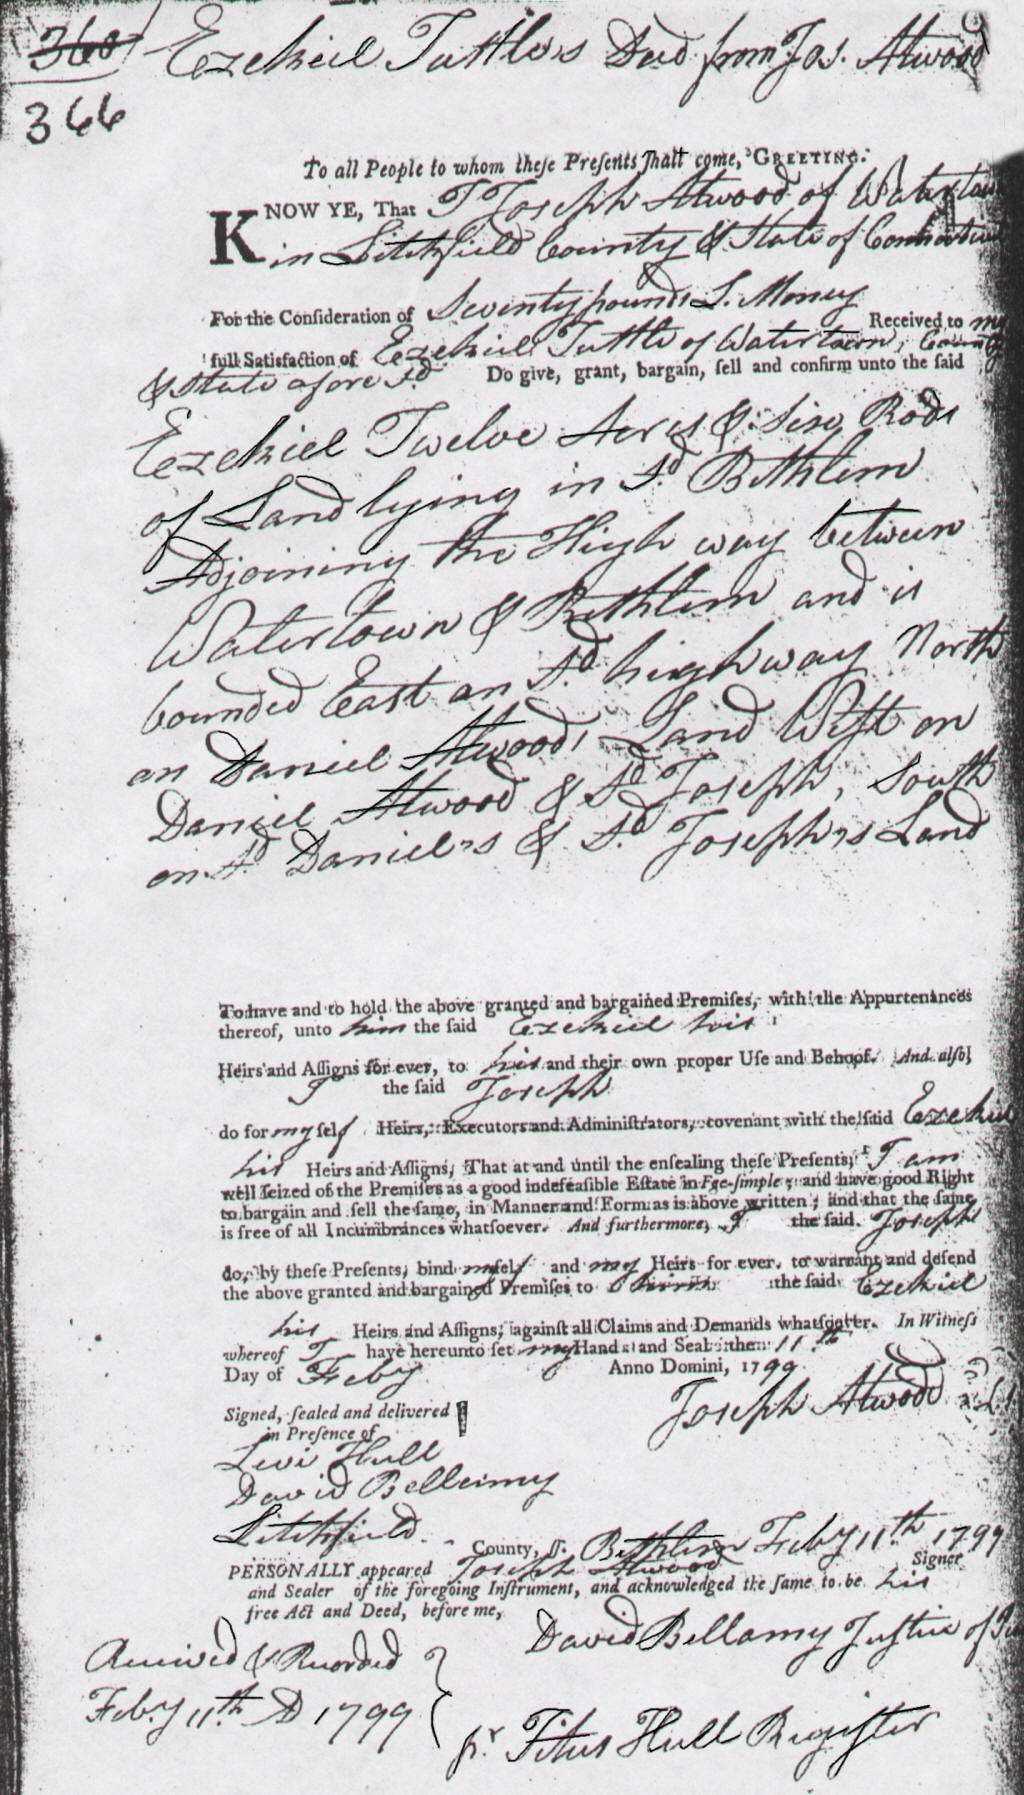 360
Ezekiel Tuttle's Deed from Jos. Atwood
366
To all People to whom theſe Preſents ſhall come, GREETING.
KNOW YE, That I Joseph Atwood of Watertown
in Litchfield County & State of Connecticut
For the Conſideration of Seventy pounds L. Money
Received to my
full Satisfaction of Ezekiel Tuttle of Watertown, County
& State afore sd. Do give, grant, bargain, ſell and confirm unto the ſaid
Ezekiel Twelve Acres & Six Rods
of Land lying in sd. Bethlem
Adjoining the High way between
Watertown & Bethlem and is
bounded East on sd. highway North
on Daniel Atwoods Land West on
Daniel Atwood & sd. Joseph, South
on sd. Daniel's & sd. Joseph's Land
To have and to hold the above granted and bargained Premiſes, with the Appurtenances
thereof, unto him the ſaid Ezekiel his
Heirs and Aſſigns for ever, to his and their own proper Uſe and Behoof. And alſo,
I the ſaid Joseph
do for my self Heirs, Executors and Adminiſtrators, covenant with the ſaid Ezekiel
his Heirs and Aſſigns, That at and until the enſealing theſe Preſents, I am
well ſeized of the Premiſes as a good indefeaſible Eſtate in Fee-simple; and have good Right
to bargain and ſell the ſame, in Manner and Form as is above written; and that the ſame
is free of all Incumbrances whatſoever. And furthermore, I the ſaid Joseph
do, by theſe Preſents, bind myself and my Heirs for ever, to warrant and defend
the above granted and bargained Premiſes to him the ſaid Ezekiel
his Heirs and Aſſigns, againſt all Claims and Demands whatſoever. In Witneſs
whereof I have hereunto ſet my Hand and Seal the 11th
Day of Feby Anno Domini, 1799
Joseph Atwood
Signed, ſealed and delivered
in Preſence of
Levi Hull
David Bellamy
Litchfield County, ſſ. Bethlem Feby 11th 1799
PERSONALLY appeared Joseph Atwood Signer
and Sealer of the foregoing Inſtrument, and acknowledged the ſame to be his
free Act and Deed, before me,
David Bellamy Justice of
Received & Recorded
Feby 11th AD 1799
pr. Titus Hull Register